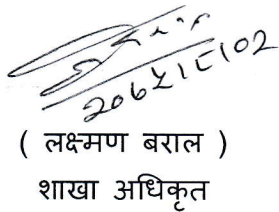 २०६५।८।०२
( लक्ष्मण बराल )
शाखा अधिकृत